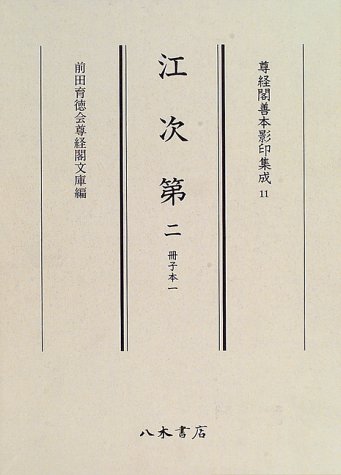 尊経閣善本影印集成 11
江次第 二 冊子本一
前田育徳会尊経閣文庫編
八木書店